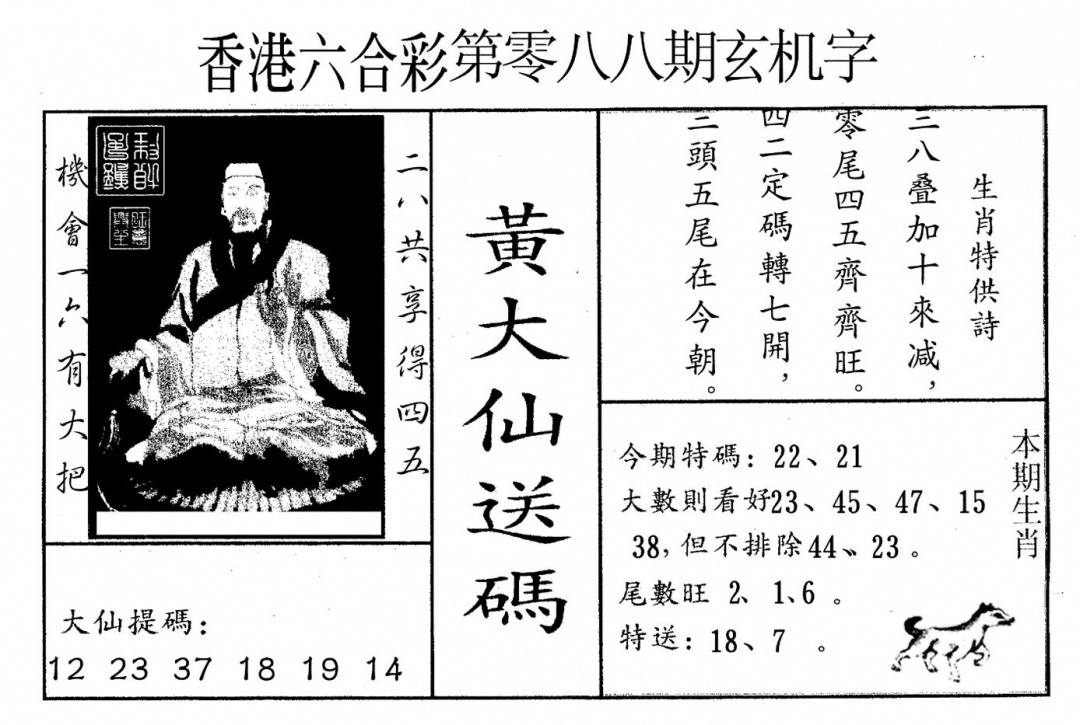 香港六合彩第零八八期玄机字
二八共享得四五
機會一六有大把
大仙提碼：
12 23 37 18 19 14
黃大仙送碼
生肖特供詩
三八叠加十來減，
零尾四五齊齊旺。
四二定碼轉七開，
三頭五尾在今朝。
本期生肖
今期特碼：22、21
大數則看好23、45、47、15
38，但不排除44、23。
尾數旺 2、1、6 。
特送：18、7 。